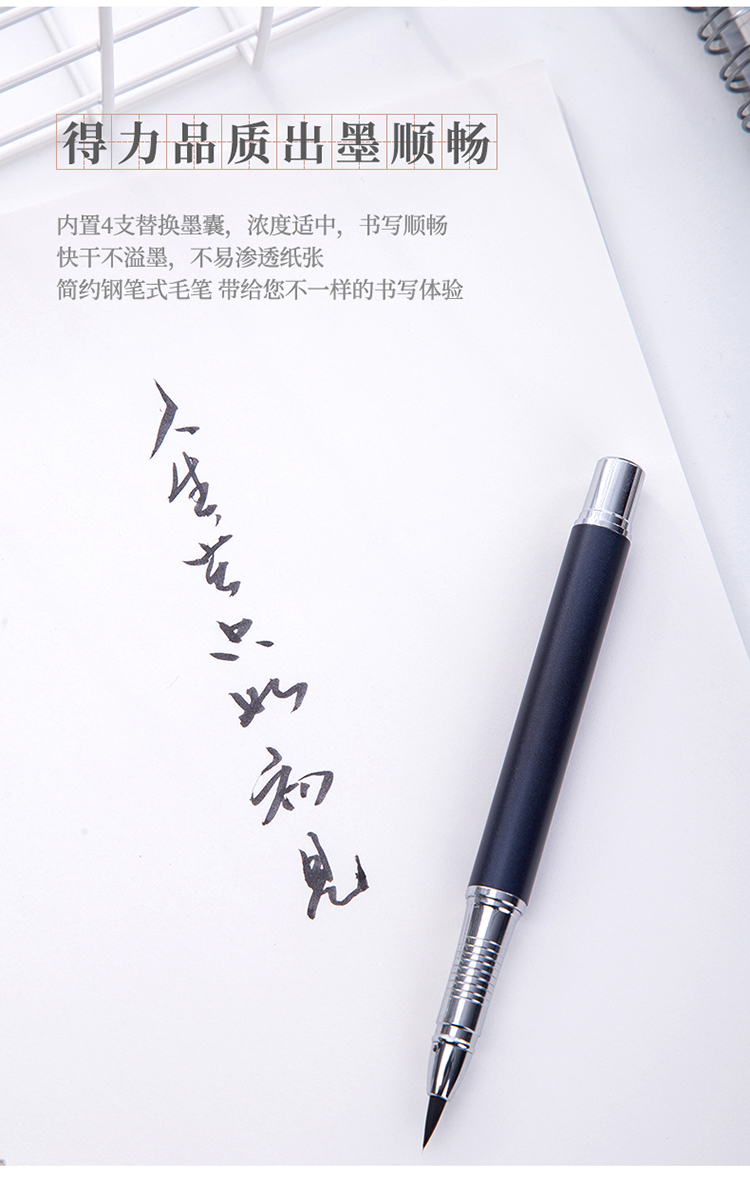 得力品质出墨顺畅
内置4支替换墨囊，浓度适中，书写顺畅
快干不溢墨，不易渗透纸张
简约钢笔式毛笔 带给您不一样的书写体验
人生若只如初见